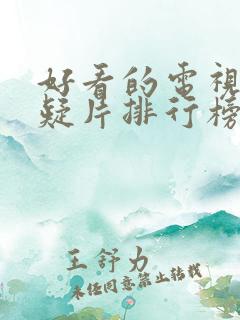 好看的電視
疑片排行榜
王舒力
未经同意禁止转载